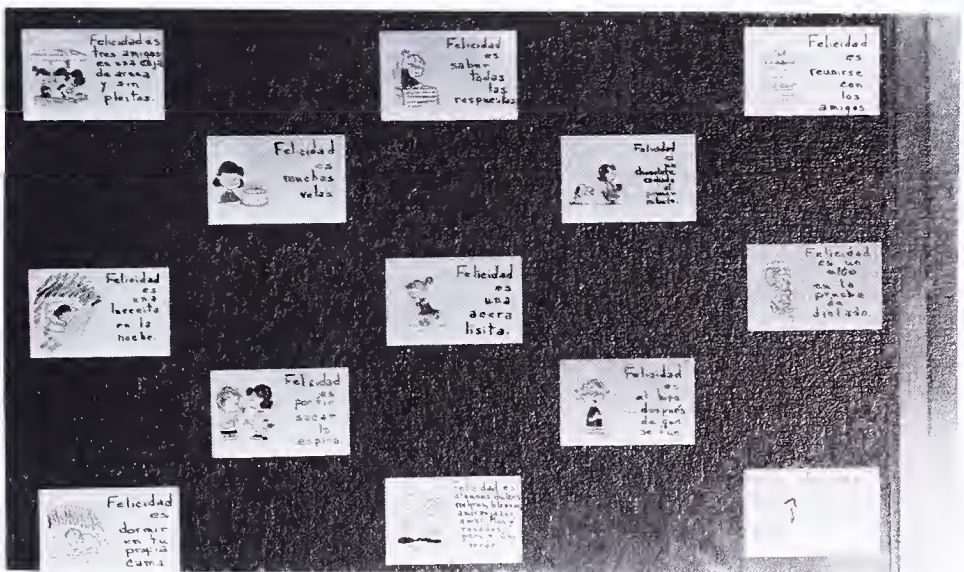 Felicidad es
tres amigos
en una caja
de arena
y sin
pleitos.
Felicidad
es
saber
todas
las
respuestas
Felicidad
es
reunirse
con
los
amigos
Felicidad
es
muchas
velas
Felicidad
es
un
chocolate
Felicidad
es
una
lucecita
en la
noche.
Felicidad
es
una
acera
lisita.
Felicidad
es un
algo
en la
prueba
de
dictado.
Felicidad
es
por fin
sacar
la
espina.
Felicidad
es
después
de que
Felicidad
es
dormir
en tu
propia
cama
Felicidad es